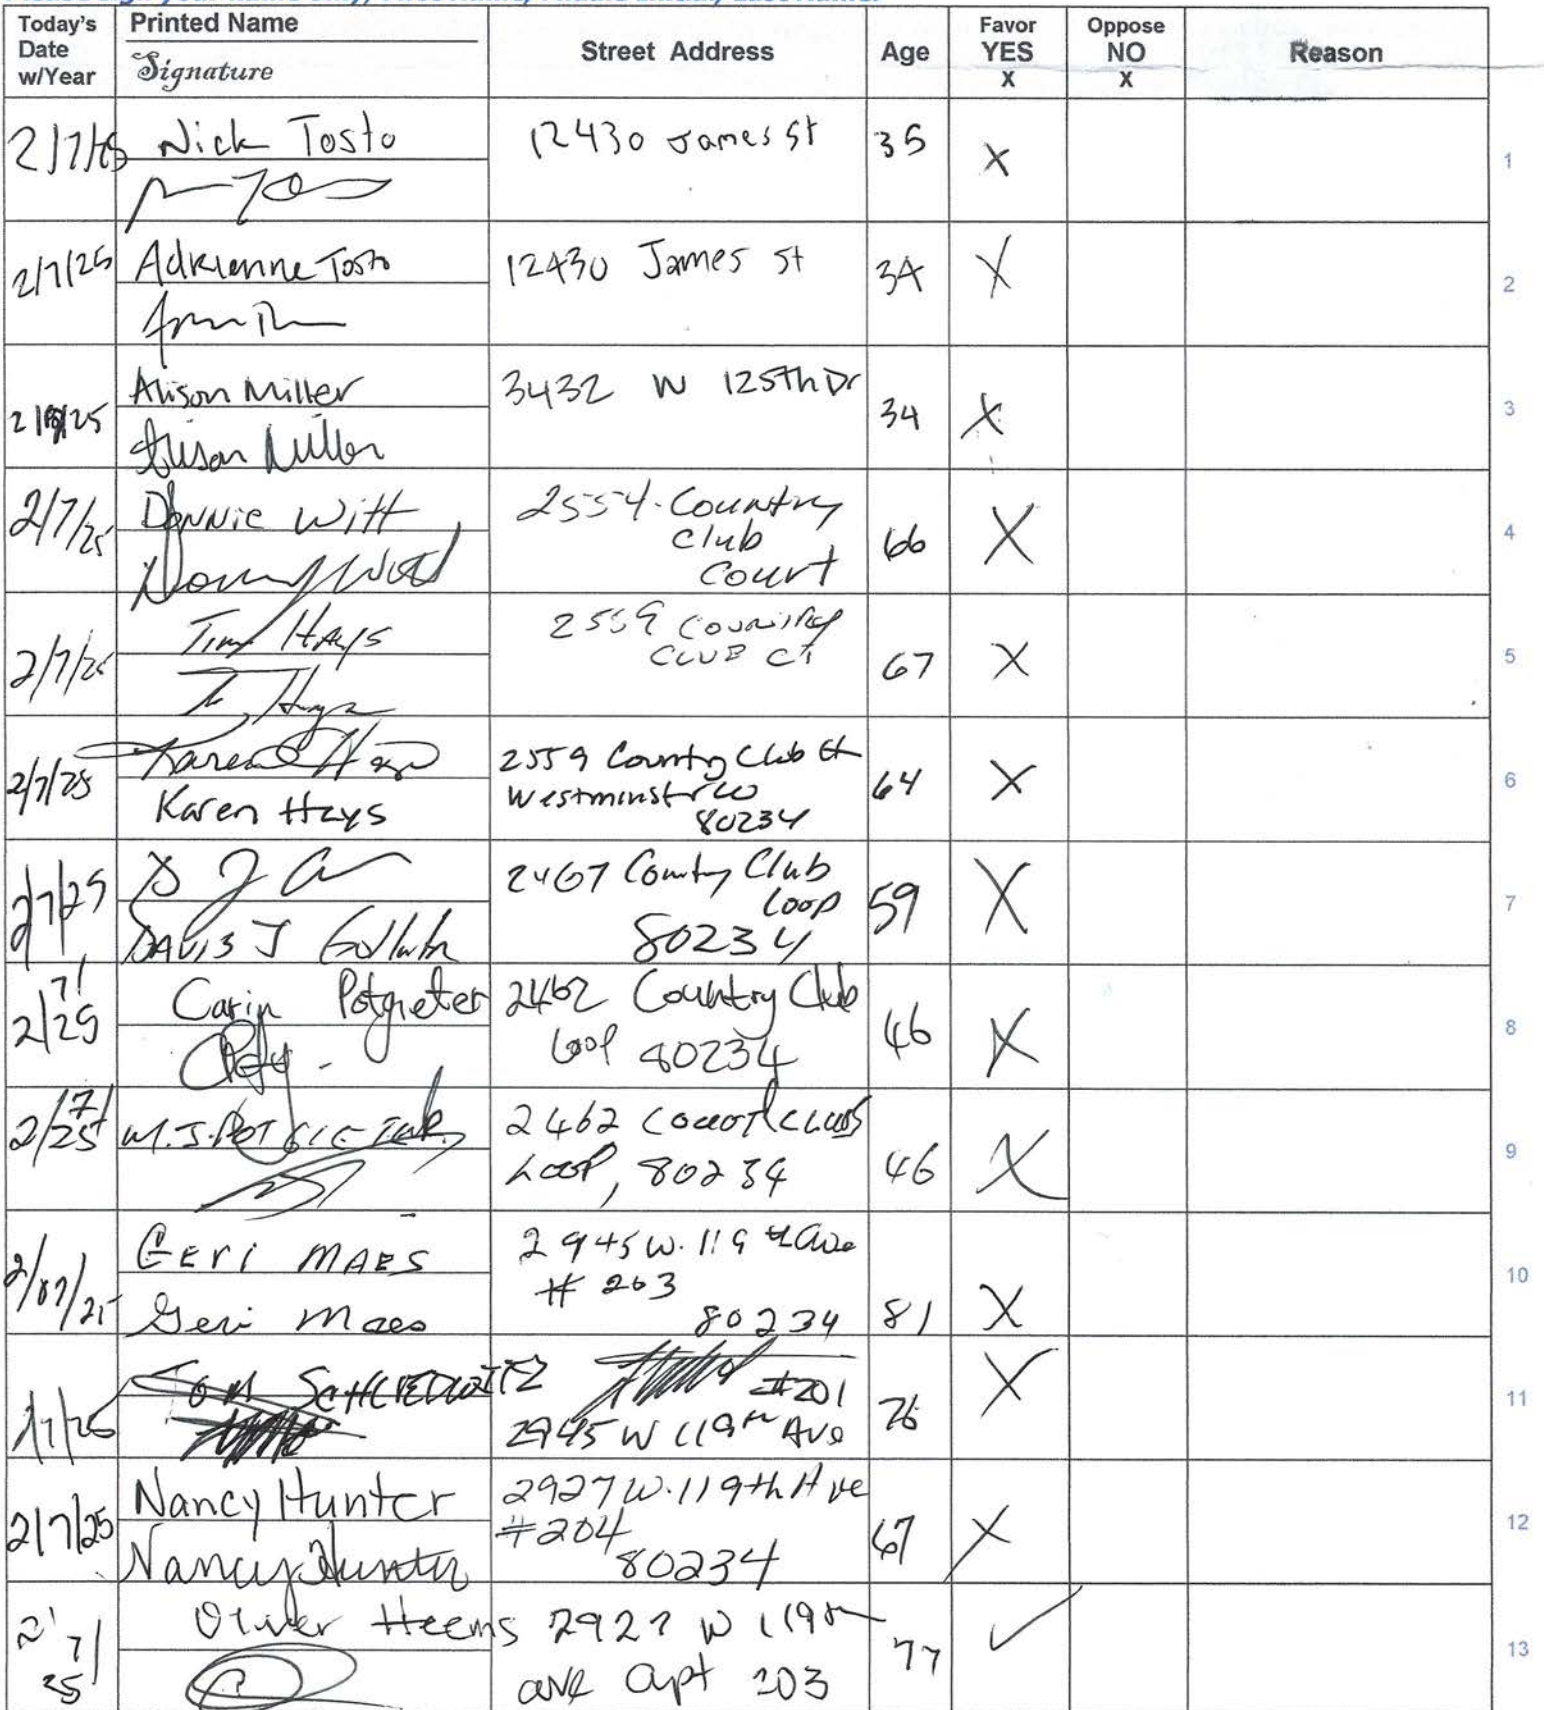 Today's Date w/Year
Printed Name
Signature
Street Address
Age
Favor YES X
Oppose NO X
Reason
2/7/25 Nick Tosto 12430 James St 35 X 1
2/7/25 Adrienne Tosto 12430 James St 34 X 2
Alison Miller 3432 W 125th Dr
34 X 3
Alison Miller
2/7/25 Donnie Witt 2554 Country
Club
Court 66 X 4
2/7/25 Tim Hays 2559 Country
Club Ct 67 X 5
T. Hays
2/7/25 Karen Hays 2559 Country Club Ct
Westminster CO
80234 64 X 6
Karen Hays
2/7/25 2467 Country Club
Loop
80234 59 X 7
David J
2/7/25 Carin Potgieter 2462 Country Club
Loop 80234 46 X 8
2/7/25 M.J. Potgieter 2462 Country Club
Loop, 80234 46 X 9
2/07/25 Geri Maes 2945 W. 119th Ave
# 203
80234 81 X 10
Geri Maes
Tom #201
2945 W 119th Ave 76 X 11
2/7/25 Nancy Hunter 2927 W. 119th Ave
#204
80234 67 X 12
Nancy Hunter
2/7/25 Oliver Heems 2927 W 119th
ave apt 203 77 ✓ 13